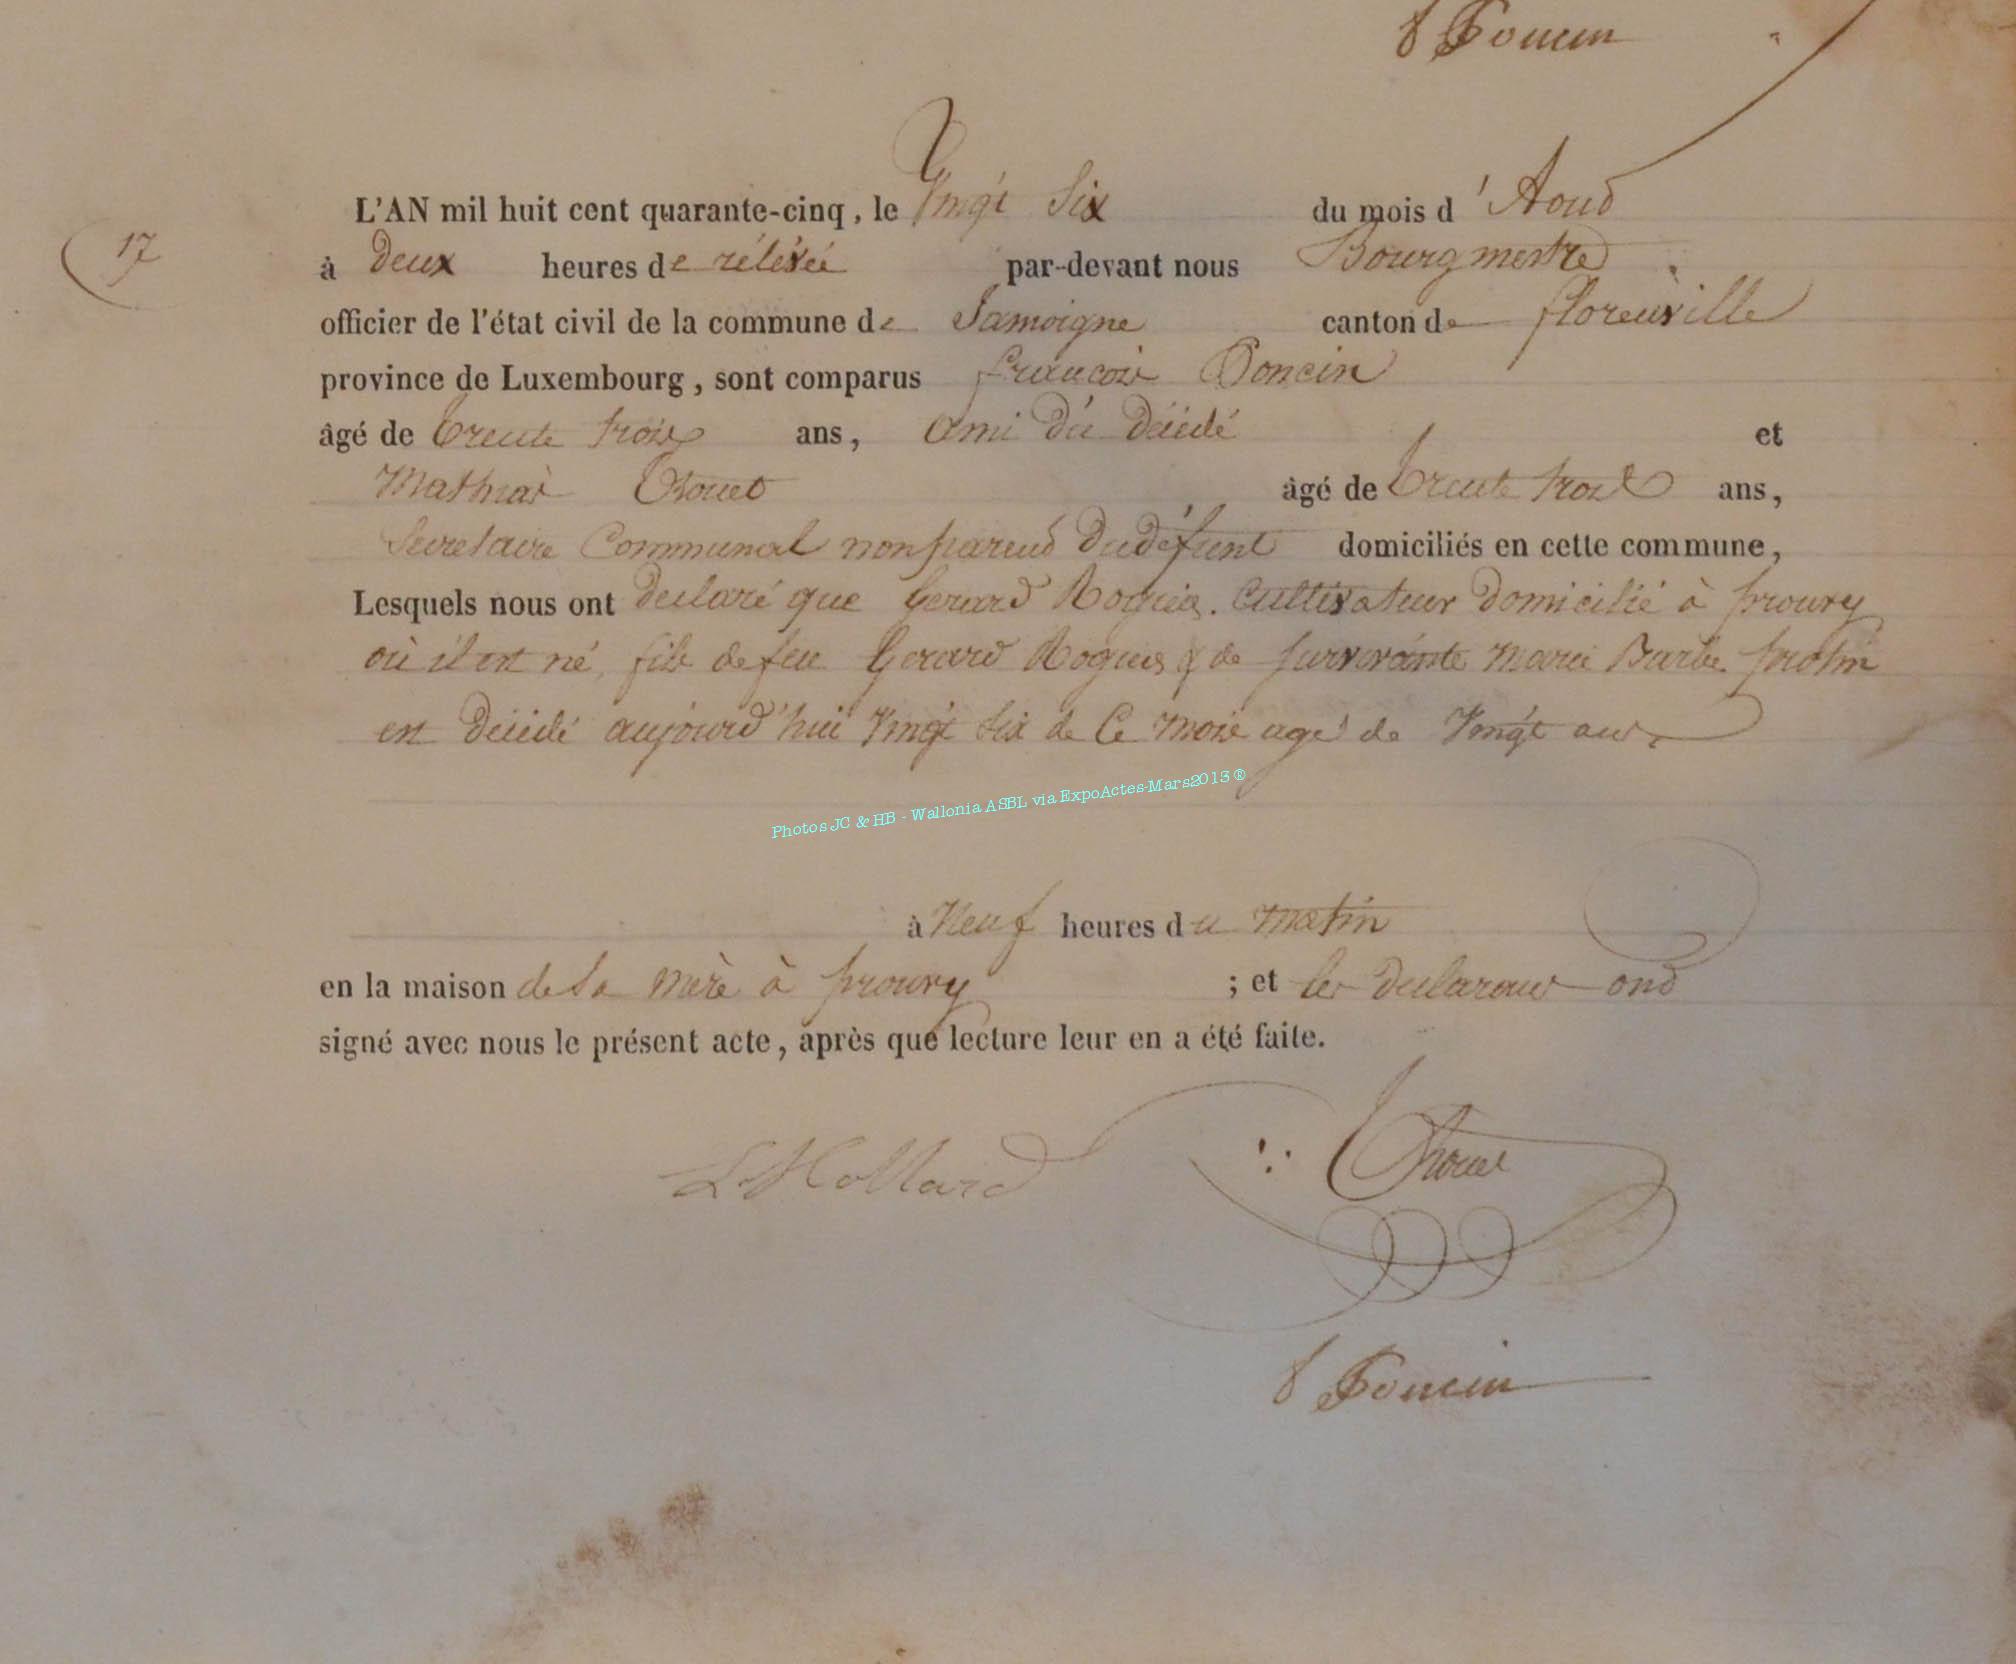 Poncin
L'AN mil huit cent quarante-cinq, le Vingt Six du mois d'Aout
17
à deux heures de rélévée par-devant nous Bourgmestre
officier de l'état civil de la commune de Jamoigne canton de florenville
province de Luxembourg, sont comparus françois Poncin
âgé de trente trois ans, ami du décédé et
Mathias Thouet âgé de trente trois ans,
Secretaire Communal non parent du défunt domiciliés en cette commune,
Lesquels nous ont declaré que Gerard Roguis. Cultivateur domicilié à prouvy
où il est né, fils de feu Gerard Roguis & de survivante Marie Barbe protin
est décédé aujourd'hui Vingt Six de Ce mois agé de Vingt ans
Photos JC & HB - Wallonia ASBL via ExpoActes-Mars2013®
à Neuf heures du matin
en la maison de Sa mère à prouvy ; et les declarans ont
signé avec nous le présent acte, après que lecture leur en a été faite.
Thouet
Poncin